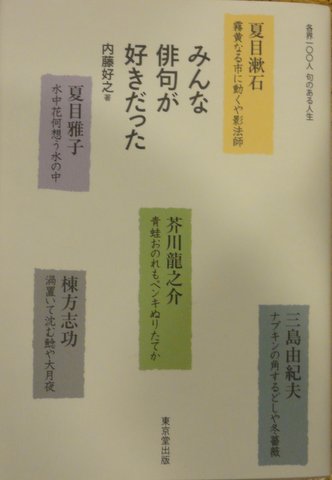 各界一〇〇人 句のある人生
みんな
俳句が
好きだった
内藤好之 著
夏目漱石
霧黄なる市に動くや影法師
夏目雅子
水中花何想う水の中
芥川龍之介
青蛙おのれもペンキぬりたてか
三島由紀夫
ナプキンの角するどしや冬薔薇
棟方志功
渦置いて沈む鯰や大月夜
東京堂出版